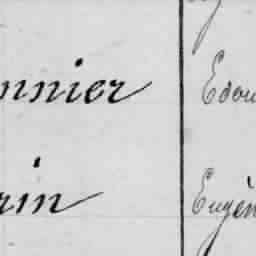 nnier Edou
rin Eugèn